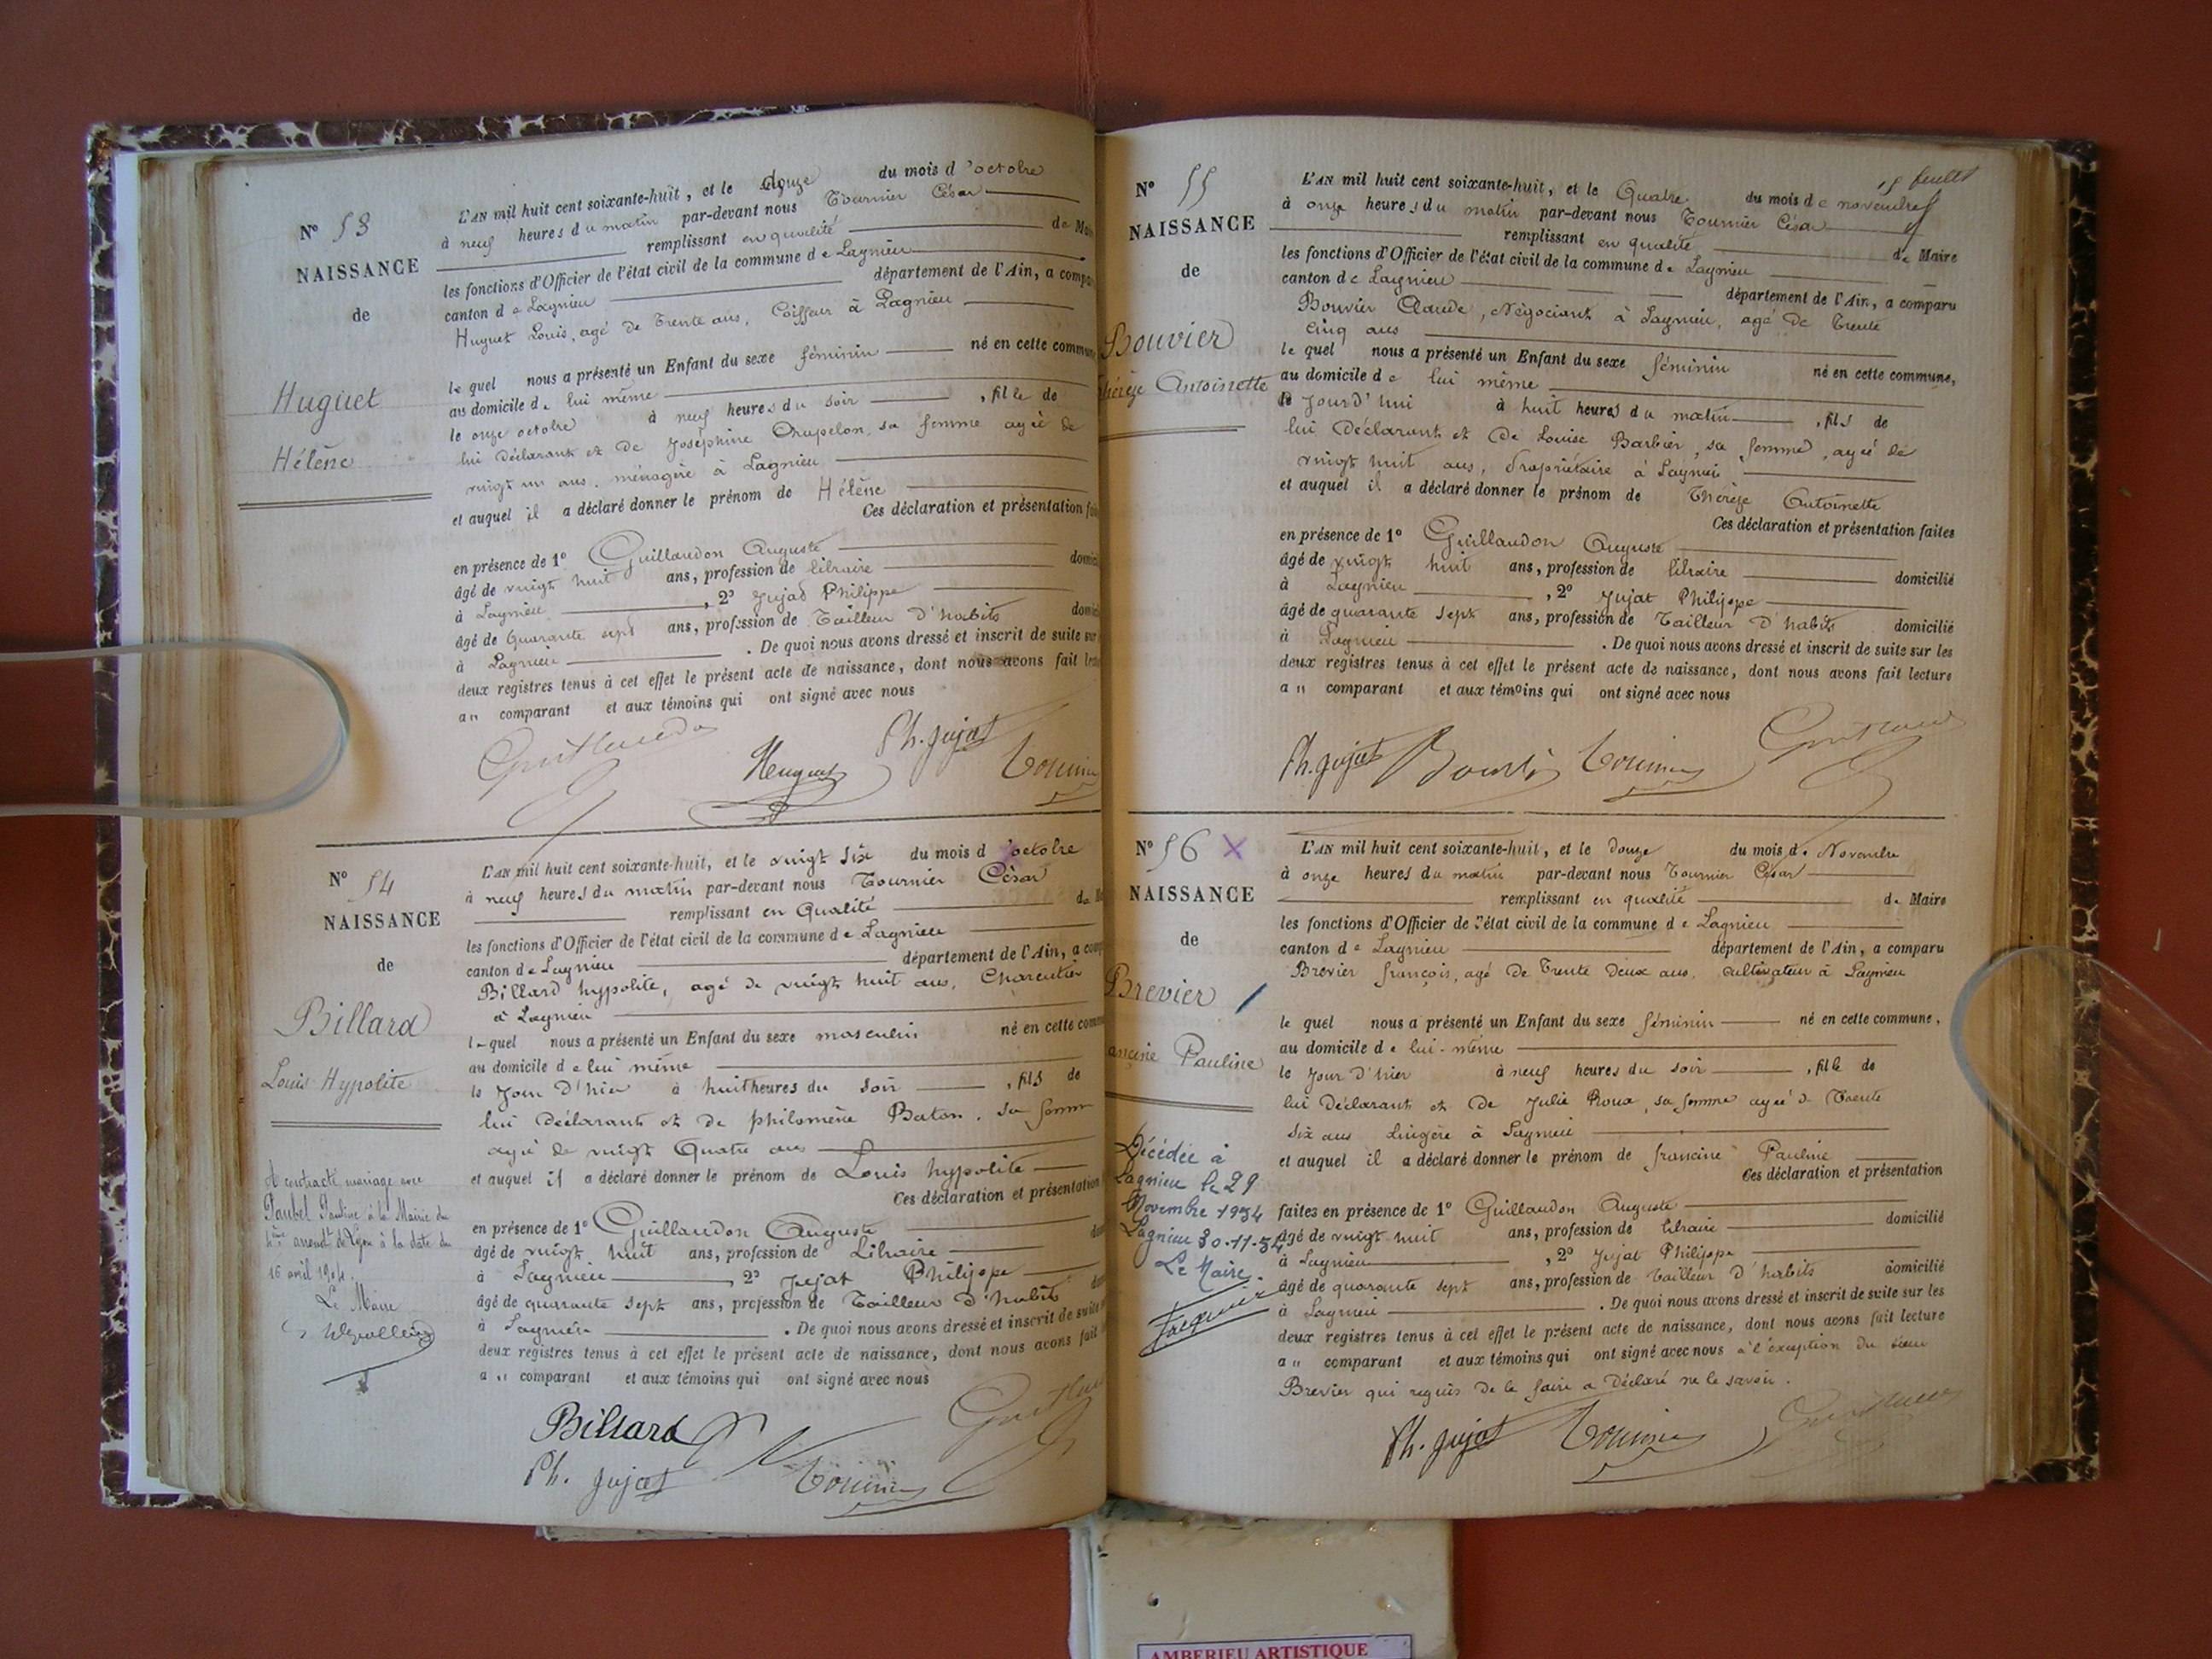 N° 53
NAISSANCE
de
Huguet
Hélène
L'AN mil huit cent soixante-huit, et le douze du mois d'octobre
à neuf heures du matin par-devant nous Tournier César
remplissant en qualité de Mai
les fonctions d'Officier de l'état civil de la commune de Lagnieu
canton de Lagnieu département de l'Ain, a compa
Huguet Louis, agé de Trente ans, Coiffeur à Lagnieu
lequel nous a présenté un Enfant du sexe féminin né en cette commun
au domicile de lui même
le onze octobre à neuf heures du soir , fille de
lui Déclarant et de Joséphine Chapelon, sa femme agée de
vingt un ans, ménagère à Lagnieu
et auquel il a déclaré donner le prénom de Hélène
Ces déclaration et présentation fai
en présence de 1° Guillaudon Auguste
âgé de vingt huit ans, profession de libraire domici
à Lagnieu , 2° Jujad Philippe
âgé de Quarante sept ans, profession de Tailleur d'habits domici
à Lagnieu . De quoi nous avons dressé et inscrit de suite sur
deux registres tenus à cet effet le présent acte de naissance, dont nous avons fait lect
au comparant et aux témoins qui ont signé avec nous
Huguet
Ph. Jujat
N° 54
NAISSANCE
de
Billard
Louis Hypolite
A contracté mariage avec
Pauline à la Mairie du
4ème arrondt de Lyon à la date du
16 avril 1904.
Le Maire
L'AN mil huit cent soixante-huit, et le vingt six du mois d'octobre
à neuf heures du matin par-devant nous Tournier César
remplissant en Qualité de
les fonctions d'Officier de l'état civil de la commune de Lagnieu
canton de Lagnieu département de l'Ain, a comp
Billard hypolite, agé de vingt huit ans, Charcutier
à Lagnieu
lequel nous a présenté un Enfant du sexe masculin né en cette comm
au domicile de lui même
le Jour d'hier à huit heures du soir , fils de
lui Déclarant et de philomène Baton, sa femm
agée de vingt Quatre ans
et auquel il a déclaré donner le prénom de Louis hypolite
Ces déclaration et présentation
en présence de 1° Guillaudon Auguste
âgé de vingt huit ans, profession de Libraire
à Lagnieu , 2° Jujat Philippe
âgé de quarante sept ans, profession de Tailleur d'habits
à Lagnieu . De quoi nous avons dressé et inscrit de suite
deux registres tenus à cet effet le présent acte de naissance, dont nous avons fait
au comparant et aux témoins qui ont signé avec nous
Billard
Ph. Jujat
15 feuillet
N° 55
NAISSANCE
de
Bouvier
Antoinette
L'AN mil huit cent soixante-huit, et le Quatre du mois de novembre
à onze heures du matin par-devant nous Tournier César
remplissant en qualité de Maire
les fonctions d'Officier de l'état civil de la commune de Lagnieu
canton de Lagnieu département de l'Ain, a comparu
Bouvier Claude, Négociant à Lagnieu, agé de Trente
cinq ans
lequel nous a présenté un Enfant du sexe féminin né en cette commune,
au domicile de lui même
Jourd'hui à huit heures du matin , fils de
lui Déclarant et De Louise Barbier, sa femme, agée de
vingt huit ans, Propriétaire à Lagnieu
et auquel il a déclaré donner le prénom de Thérèze Antoinette
Ces déclaration et présentation faites
en présence de 1° Guillaudon Auguste
âgé de vingt huit ans, profession de libraire domicilié
à Lagnieu , 2° Jujat Philippe
âgé de quarante sept ans, profession de Tailleur d'habits domicilié
à Lagnieu . De quoi nous avons dressé et inscrit de suite sur les
deux registres tenus à cet effet le présent acte de naissance, dont nous avons fait lecture
au comparant et aux témoins qui ont signé avec nous
Ph. Jujat
N° 56 X
NAISSANCE
de
Brevier
Pauline
Décédée à
Lagnieu le 29
Novembre 1954
Lagnieu 30-11-54
Le Maire.
L'AN mil huit cent soixante-huit, et le douze du mois de Novembre
à onze heures du matin par-devant nous Tournier César
remplissant en qualité de Maire
les fonctions d'Officier de l'état civil de la commune de Lagnieu
canton de Lagnieu département de l'Ain, a comparu
Brevier françois, agé de Trente Deux ans, cultivateur à Lagnieu
lequel nous a présenté un Enfant du sexe féminin né en cette commune,
au domicile de lui-même
le Jour d'hier à neuf heures du soir , fille de
lui Déclarant et De Julie Roux, sa femme agée de Trente
six ans Lingère à Lagnieu
et auquel il a déclaré donner le prénom de francine Pauline
Ces déclaration et présentation
faites en présence de 1° Guillaudon Auguste
âgé de vingt huit ans, profession de libraire domicilié
à Lagnieu , 2° Jujat Philippe
âgé de quarante sept ans, profession de Tailleur d'habits domicilié
à Lagnieu . De quoi nous avons dressé et inscrit de suite sur les
deux registres tenus à cet effet le présent acte de naissance, dont nous avons fait lecture
au comparant et aux témoins qui ont signé avec nous à l'exception du sieur
Brevier qui requis de le faire a Déclaré ne le savoir.
Ph. Jujat
AMBERIEU ARTISTIQUE